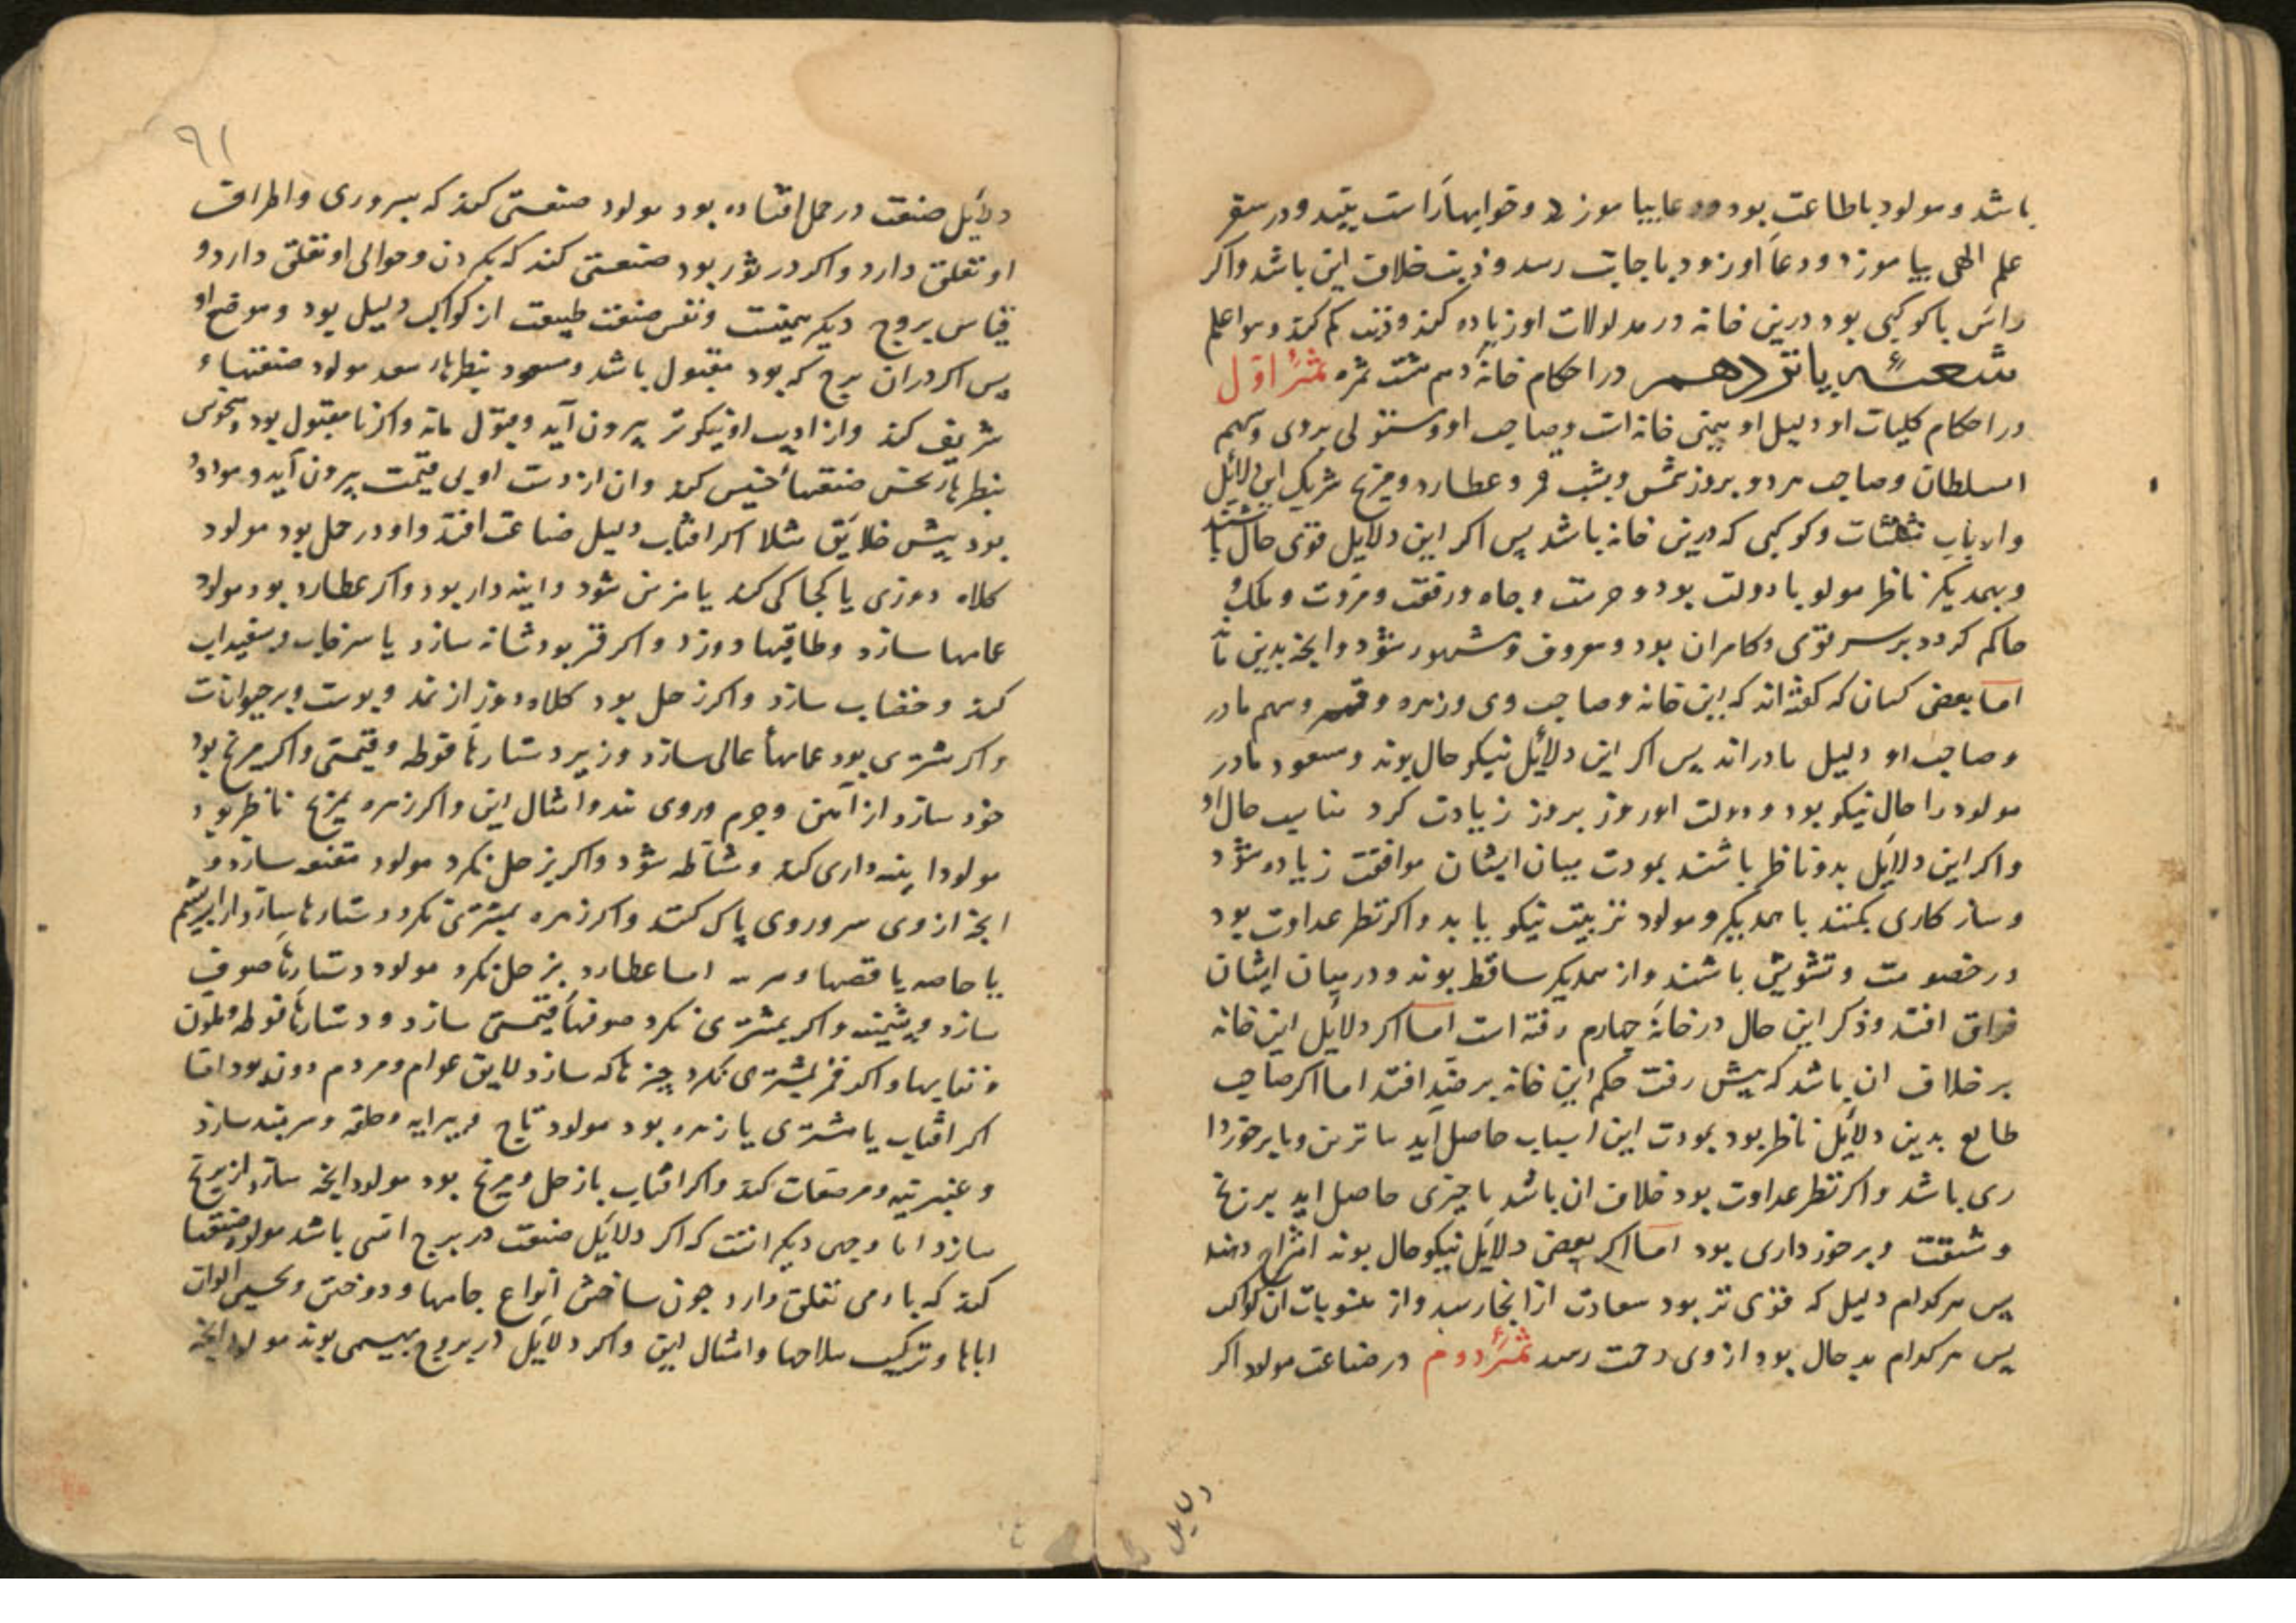 باشد و مولود باطاعت بود و دعا بیاموزد و خوابها راست بیند و در سفر
علم الهی بیاموزد و دعا او زود باجابت رسد و ذنب خلاف این باشد و اکر
راس با کوکبی بود درین خانه در مدلولات او زیاده کند و ذنب کم کند و هو اعلم
شعبهٔ یانزدهم در احکام خانهٔ دهم هشت ثمره ثمرهٔ اول
در احکام کلیات او دلیل او همین خانه است و صاحب او و مستولی بروی و سهم
السلطان و صاحب هر دو بروز شمس و بشب قمر و عطارد و مریخ شریک این دلایل
و ارباب مثلثات و کوکبی که درین خانه باشد پس اکر این دلایل قوی حال باشند
و بهمدیکر ناظر مولود با دولت بود و حرمت و جاه و رفعت و مروت و ملک
حاکم کردد بر سر قومی و کامران بود و معروف و مشهور شود و آنچه بدین ماند
اما بعضی کسان که کفته اند که این خانه و صاحب وی و زهره و قمر و سهم مادر
و صاحب او دلیل مادراند پس اکر این دلایل نیکو حال بوند و مسعود مادر
مولود را حال نیکو بود و دولت او روز بروز زیادت کردد مناسب حال او
و اکر این دلایل بدو ناظر باشند بمودت میان ایشان موافقت زیاده شود
و سازکاری بکنند با همدیکر و مولود تربیت نیکو یابد و اکر نظر عداوت بود
در خصومت و تشویش باشند و از همدیکر ساقط بوند و در میان ایشان
فراق افتد و ذکر این حال در خانهٔ چهارم رفته است اما اکر دلایل این خانه
بر خلاف ان باشد که پیش رفت حکم این خانه بر ضد افتد اما اکر صاحب
طالع بدین دلایل ناظر بود بمودت این اسباب حاصل آید ساترین و با برخوردا
ری باشد و اکر نظر عداوت بود خلاف ان باشد با چیزی حاصل اید برنج
و مشقت و برخورداری بود اما اکر بعضی دلایل نیکو حال بوند امتزاج دهند
پس هر کدام دلیل که قوی تر بود سعادت از انجا رسد و از منسوبات ان کواکب
پس هر کدام بد حال بود از وی زحمت رسد ثمرهٔ دوم در صناعت مولود اکر
دلایل
۹۱
دلایل صنعت در حمل افتاده بود مولود صنعتی کند که بسروری و اطراف
او تعلق دارد و اکر در ثور بود صنعتی کند که بکردن و حوالی او تعلق دارد و
قیاس بروج دیکر همینست و نفس صنعت طبیعت از کواکب دلیل بود و موضع او
پس اکر در ان برج که بود مقبول باشد و مسعود بنظرهاء سعد مولود صنعتهاء
شریف کند و از ادیب او نیکوتر بیرون آید و مقول ماند و اکر نا مقبول بود و منحوس
بنظرهاء نحس صنعتهاء خسیس کند و ان از دست او بی قیمت بیرون آید و مردود
بود پیش خلایق مثلا اکر افتاب دلیل صناعت افتد و او در حمل بود مولود
کلاه دوزی یا کجاکی کند یا مزین شود و اینه دار بود و اکر عطارد بود مولود
عمامها سازد و طاقیها دوزد و اکر قمر بود شانه سازد یا سرخاب و سفیداب
کند و خضاب سازد و اکر زحل بود کلاه دوز از نمد و پوست و بر حیوانات
و اکر مشتری بود عمامهاء عالی سازد و زیر دستارها فوطه و قیمتی و اکر مریخ بود
خود سازد از آهن و چرم و روی بند و امثال این و اکر زهره بمریخ ناظر بود
مولود اینه داری کند و مشاطه شود و اکر بزحل نکرد مولود مقنعه سازد و
انچه از وی سر و روی پاک کنند و اکر زهره بمشتری نکرد دستارها سازد از ابریشم
یا خاصه یا قصبها و اما عطارد بزحل نکرد مولود دستارهاء صوف
سازد و پشمینه و اکر بمشتری نکرد صوفهاء قیمتی سازد و دستارهاء فوطه و ملون
و نقابها و اکر قمر بمشتری نکرد چیزها که سازد لایق عوام و مردم دون بود اما
اکر افتاب یا مشتری یا زهره بود مولود تاج و پیرایه و حلقه و سربند سازد
و عنبرینه و مرصعات کند و اکر افتاب با زحل و مریخ بود مولود انچه سازد از برنج
سازد اما وجهی دیکر انست که اکر دلایل صنعت در برج اتشی باشد مولود صنعتها
کند که بادمی تعلق دارد چون ساختن انواع جامها و دوختن و الوان
اباها و ترکیب سلاحها و امثال این و اکر دلایل در بروج بهیمی بوند مولود انچه